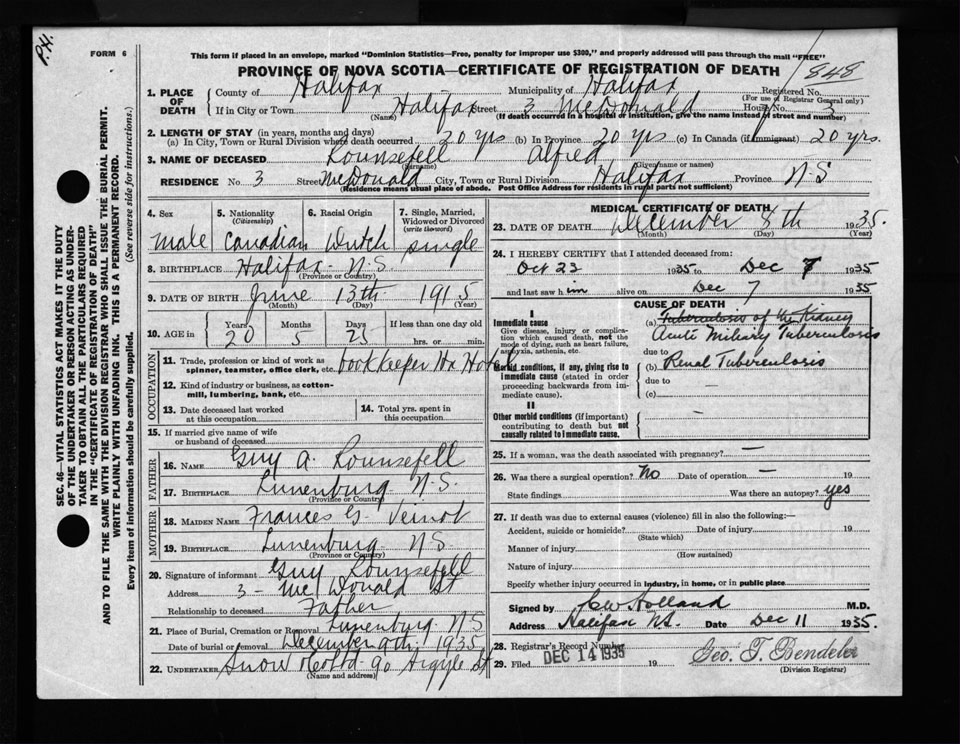 P.H.
FORM 6
This form if placed in an envelope, marked "Dominion Statistics—Free, penalty for improper use $300," and properly addressed will pass through the mail "FREE"
PROVINCE OF NOVA SCOTIA—CERTIFICATE OF REGISTRATION OF DEATH
848
1. PLACE OF DEATH
County of Halifax Municipality of Halifax Registered No.
(For use of Registrar General only)
If in City or Town Halifax Street 3 McDonald House No. 3
(Name) (If death occurred in a hospital or institution, give the name instead of street and number)
2. LENGTH OF STAY (in years, months and days)
(a) In City, Town or Rural Division where death occurred 20 yrs (b) In Province 20 yrs (c) In Canada (if immigrant) 20 yrs.
3. NAME OF DECEASED Lounsefell Alfred
(Surname) (Given name or names)
RESIDENCE No. 3 Street McDonald City, Town or Rural Division Halifax Province N.S
(Residence means usual place of abode. Post Office Address for residents in rural parts not sufficient)
4. Sex
male
5. Nationality (Citizenship)
Canadian
6. Racial Origin
Dutch
7. Single, Married, Widowed or Divorced (write the word)
single
8. BIRTHPLACE Halifax N.S.
(Province or Country)
9. DATE OF BIRTH June 13th 1915
(Month) (Day) (Year)
10. AGE in
Years Months Days If less than one day old
20 5 25 hrs. or min.
OCCUPATION
11. Trade, profession or kind of work as spinner, teamster, office clerk, etc. bookkeeper Hx Hotel
12. Kind of industry or business, as cotton-mill, lumbering, bank, etc.
13. Date deceased last worked at this occupation
14. Total yrs. spent in this occupation
15. If married give name of wife or husband of deceased
FATHER
16. NAME Guy A. Lounsefell
17. BIRTHPLACE Lunenburg N.S.
(Province or Country)
MOTHER
18. MAIDEN NAME Frances G. Veinot
19. BIRTHPLACE Lunenburg N.S.
(Province or Country)
20. Signature of informant Guy Lounsefell
Address 3 - McDonald St
Relationship to deceased Father
21. Place of Burial, Cremation or Removal Lunenburg N.S
Date of burial or removal December 9th 1935
22. UNDERTAKER Snow & Co Ltd 90 Argyle St
(Name and address)
MEDICAL CERTIFICATE OF DEATH
23. DATE OF DEATH December 8th 1935.
(Month) (Day) (Year)
24. I HEREBY CERTIFY that I attended deceased from:
Oct 23 1935 to Dec 7 1935
and last saw him alive on Dec 7 1935
CAUSE OF DEATH
I
Immediate cause
Give disease, injury or complication which caused death, not the mode of dying, such as heart failure, asphyxia, asthenia, etc.
(a) Tuberculosis of the Kidney
Acute Miliary Tuberculosis
due to
Morbid conditions, if any, giving rise to immediate cause (stated in order proceeding backwards from immediate cause).
(b) Renal Tuberculosis
due to —
(c)
II
Other morbid conditions (if important) contributing to death but not causally related to immediate cause.
—
25. If a woman, was the death associated with pregnancy? —
26. Was there a surgical operation? No Date of operation — 19
State findings Was there an autopsy? yes
27. If death was due to external causes (violence) fill in also the following:—
Accident, suicide or homicide? Date of injury 19
(State which)
Manner of injury
(How sustained)
Nature of injury
Specify whether injury occurred in industry, in home, or in public place
Signed by C W Holland M.D.
Address Halifax N.S. Date Dec 11 1935.
28. Registrar's Record Number
29. Filed DEC 14 1935 19 Geo. T. Bendeler
(Division Registrar)
SEC. 46—VITAL STATISTICS ACT MAKES IT THE DUTY
OF THE UNDERTAKER OR PERSON ACTING AS UNDER-
TAKER TO OBTAIN ALL THE PARTICULARS REQUIRED
IN THE "CERTIFICATE OF REGISTRATION OF DEATH"
AND TO FILE THE SAME WITH THE DIVISION REGISTRAR WHO SHALL ISSUE THE BURIAL PERMIT.
WRITE PLAINLY WITH UNFADING INK. THIS IS A PERMANENT RECORD.
Every item of information should be carefully supplied. (See reverse side for instructions.)